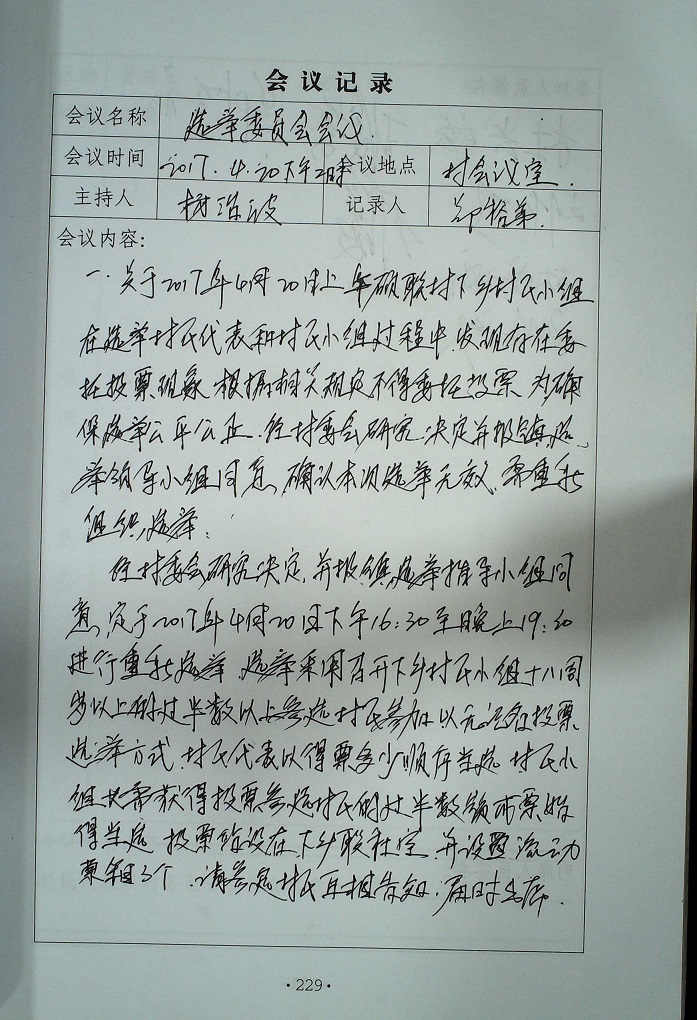 会议记录
会议名称 选举委员会会议.
会议时间 2017.4.20下午2时 会议地点 村会议室.
主持人 记录人
会议内容:
一.关于2017年4月20日上午硕联村下乡村民小组
在选举村民代表和村民小组过程中,发现存在委
托投票现象,根据相关规定不得委托投票,为确
保选举公平公正.经村委会研究决定并报镇选
举领导小组同意,确认本次选举无效,需重新
组织选举:
经村委会研究决定,并报镇选举指导小组同
意,定于2017年4月20日下午16:30至晚上19:30
进行重新选举,选举采用召开下乡村民小组十八周
岁以上的过半数以上参选村民参加以无记名投票
选举方式,村民代表以得票多少顺序当选,村民小
组长需获得投票参选村民的过半数选票始
得当选,投票站设在下乡联社室,并设置流动
票箱3个,请参选村民互相告知,届时出席.
·229·